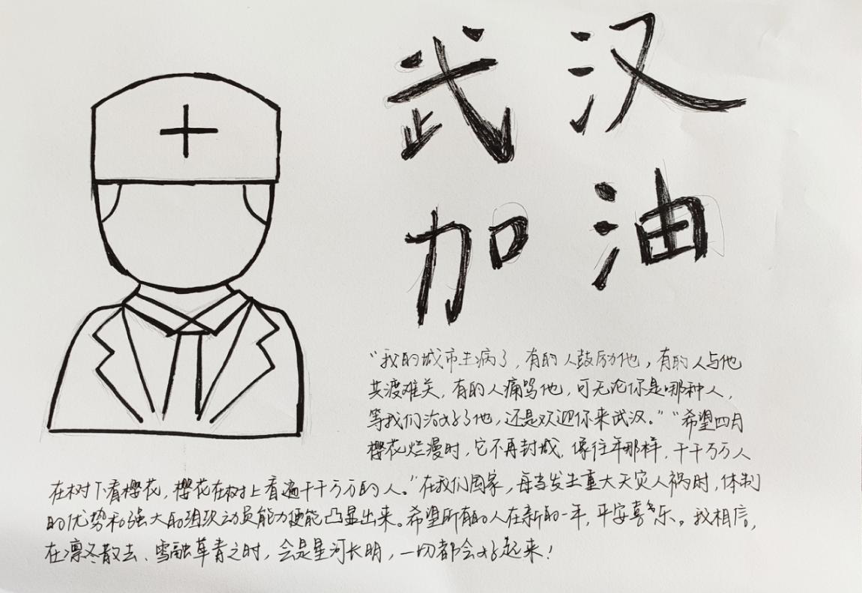 武汉
加油
“我的城市生病了，有的人鼓励他，有的人与他
共渡难关，有的人痛骂他，可无论你是哪种人，
等我们治好了他，还是欢迎你来武汉。”“希望四月
樱花烂漫时，它不再封城，像往年那样，千千万万人
在树下看樱花，樱花在树上看遍千千万万的人。”在我们国家，每当发生重大天灾人祸时，体制
的优势和强大的组织动员能力便能凸显出来。希望所有的人在新的一年，平安喜乐。我相信，
在凛冬散去、雪融草青之时，会是星河长明，一切都会好起来！